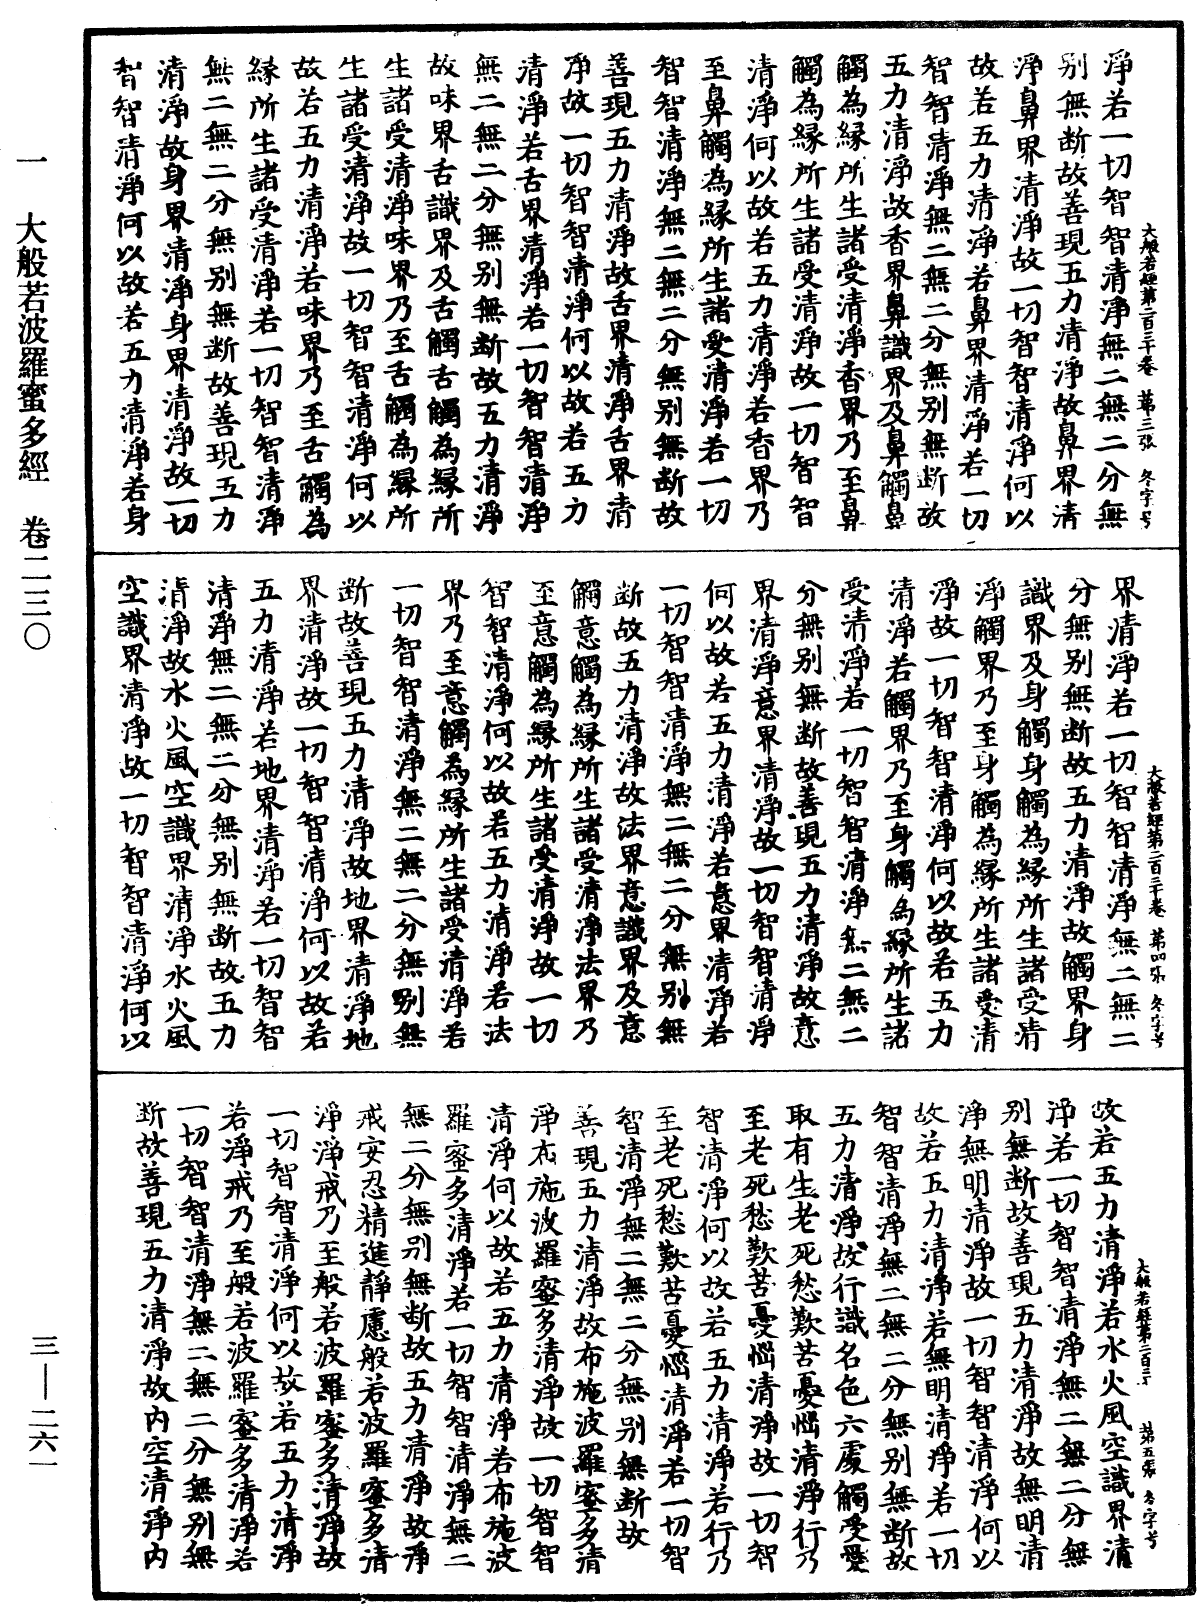 大般若經第二百三十卷 第三張 冬字号
淨若一切智智清淨無二無二分無
别無断故善現五力清淨故鼻界清
淨鼻界清淨故一切智智清淨何以
故若五力清淨若鼻界清淨若一切
智智清淨無二無二分無别無断故
五力清淨故香界鼻識界及鼻觸鼻
觸為緣所生諸受清淨香界乃至鼻
觸為緣所生諸受清淨故一切智智
清淨何以故若五力清淨若香界乃
至鼻觸為緣所生諸受清淨若一切
智智清淨無二無二分無别無断故
善現五力清淨故舌界清淨舌界清
淨故一切智智清淨何以故若五力
清淨若舌界清淨若一切智智清淨
無二無二分無别無断故五力清淨
故味界舌識界及舌觸舌觸為緣所
生諸受清淨味界乃至舌觸為緣所
生諸受清淨故一切智智清淨何以
故若五力清淨若味界乃至舌觸為
緣所生諸受清淨若一切智智清淨
無二無二分無别無断故善現五力
清淨故身界清淨身界清淨故一切
智智清淨何以故若五力清淨若身
大般若經第二百三十卷 第四張 冬字号
界清淨若一切智智清淨無二無二
分無别無断故五力清淨故觸界身
識界及身觸身觸為緣所生諸受清
淨觸界乃至身觸為緣所生諸受清
淨故一切智智清淨何以故若五力
清淨若觸界乃至身觸為緣所生諸
受清淨若一切智智清淨無二無二
分無别無断故善現五力清淨故意
界清淨意界清淨故一切智智清淨
何以故若五力清淨若意界清淨若
一切智智清淨無二無二分無别無
断故五力清淨故法界意識界及意
觸意觸為緣所生諸受清淨法界乃
至意觸為緣所生諸受清淨故一切
智智清淨何以故若五力清淨若法
界乃至意觸為緣所生諸受清淨若
一切智智清淨無二無二分無别無
断故善現五力清淨故地界清淨地
界清淨故一切智智清淨何以故若
五力清淨若地界清淨若一切智智
清淨無二無二分無别無断故五力
清淨故水火風空識界清淨水火風
空識界清淨故一切智智清淨何以
大般若經第二百三十 第五張 冬字号
故若五力清淨若水火風空識界清
淨若一切智智清淨無二無二分無
别無断故善現五力清淨故無明清
淨無明清淨故一切智智清淨何以
故若五力清淨若無明清淨若一切
智智清淨無二無二分無别無断故
五力清淨故行識名色六處觸受愛
取有生老死愁歎苦憂惱清淨行乃
至老死愁歎苦憂惱清淨故一切智
智清淨何以故若五力清淨若行乃
至老死愁歎苦憂惱清淨若一切智
智清淨無二無二分無别無断故
善現五力清淨故布施波羅蜜多清
淨布施波羅蜜多清淨故一切智智
清淨何以故若五力清淨若布施波
羅蜜多清淨若一切智智清淨無二
無二分無别無断故五力清淨故淨
戒安忍精進靜慮般若波羅蜜多清
淨淨戒乃至般若波羅蜜多清淨故
一切智智清淨何以故若五力清淨
若淨戒乃至般若波羅蜜多清淨若
一切智智清淨無二無二分無别無
断故善現五力清淨故內空清淨內
一 大般若波羅蜜多經 卷二三〇
三—二六一